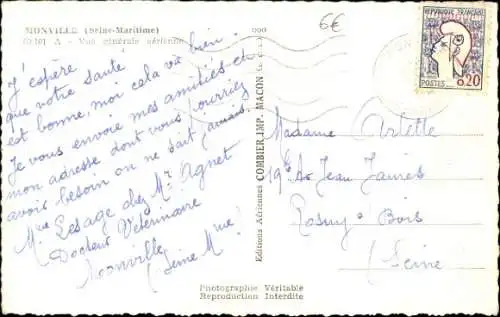 MONVILLE (Seine-Maritime)
A - Vue générale aérienne
6€
J'espère
que votre santé
est bonne, moi cela va bien.
Je vous envoie mes amitiés et
mon adresse dont vous pourriez
avoir besoin on ne sait jamais.
Mme Lesage chez Mr Agnet
Docteur Vétérinaire
Monville
(Seine Mme)
Editions Aériennes COMBIER IMP. MACON
REPUBLIQUE FRANÇAISE
POSTES 0.20
Madame Arlette
19 Av Jean Jaurès
Rosny s Bois
(Seine)
Photographie Véritable
Reproduction Interdite